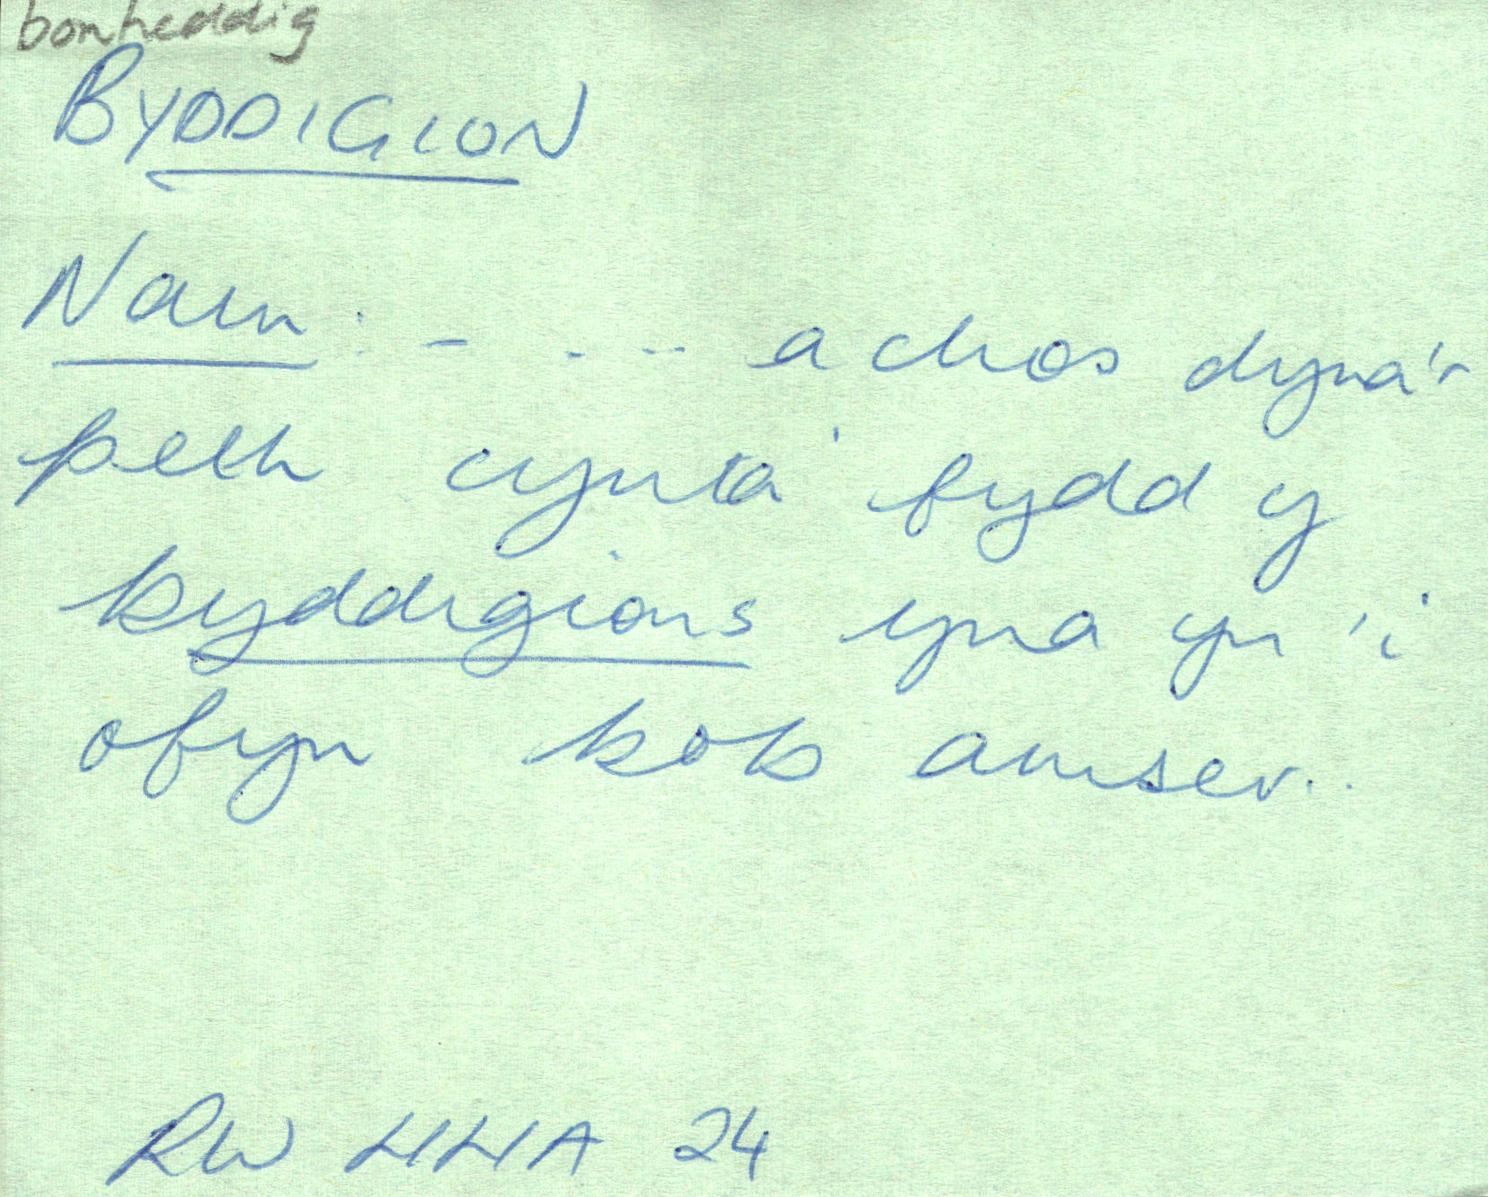 bonheddig
BYDDIGION
Nain :- ... achos dyna'r
peth cynta' fydd y
byddigions yna yn 'i
ofyn bob amser..
RW HHA 24